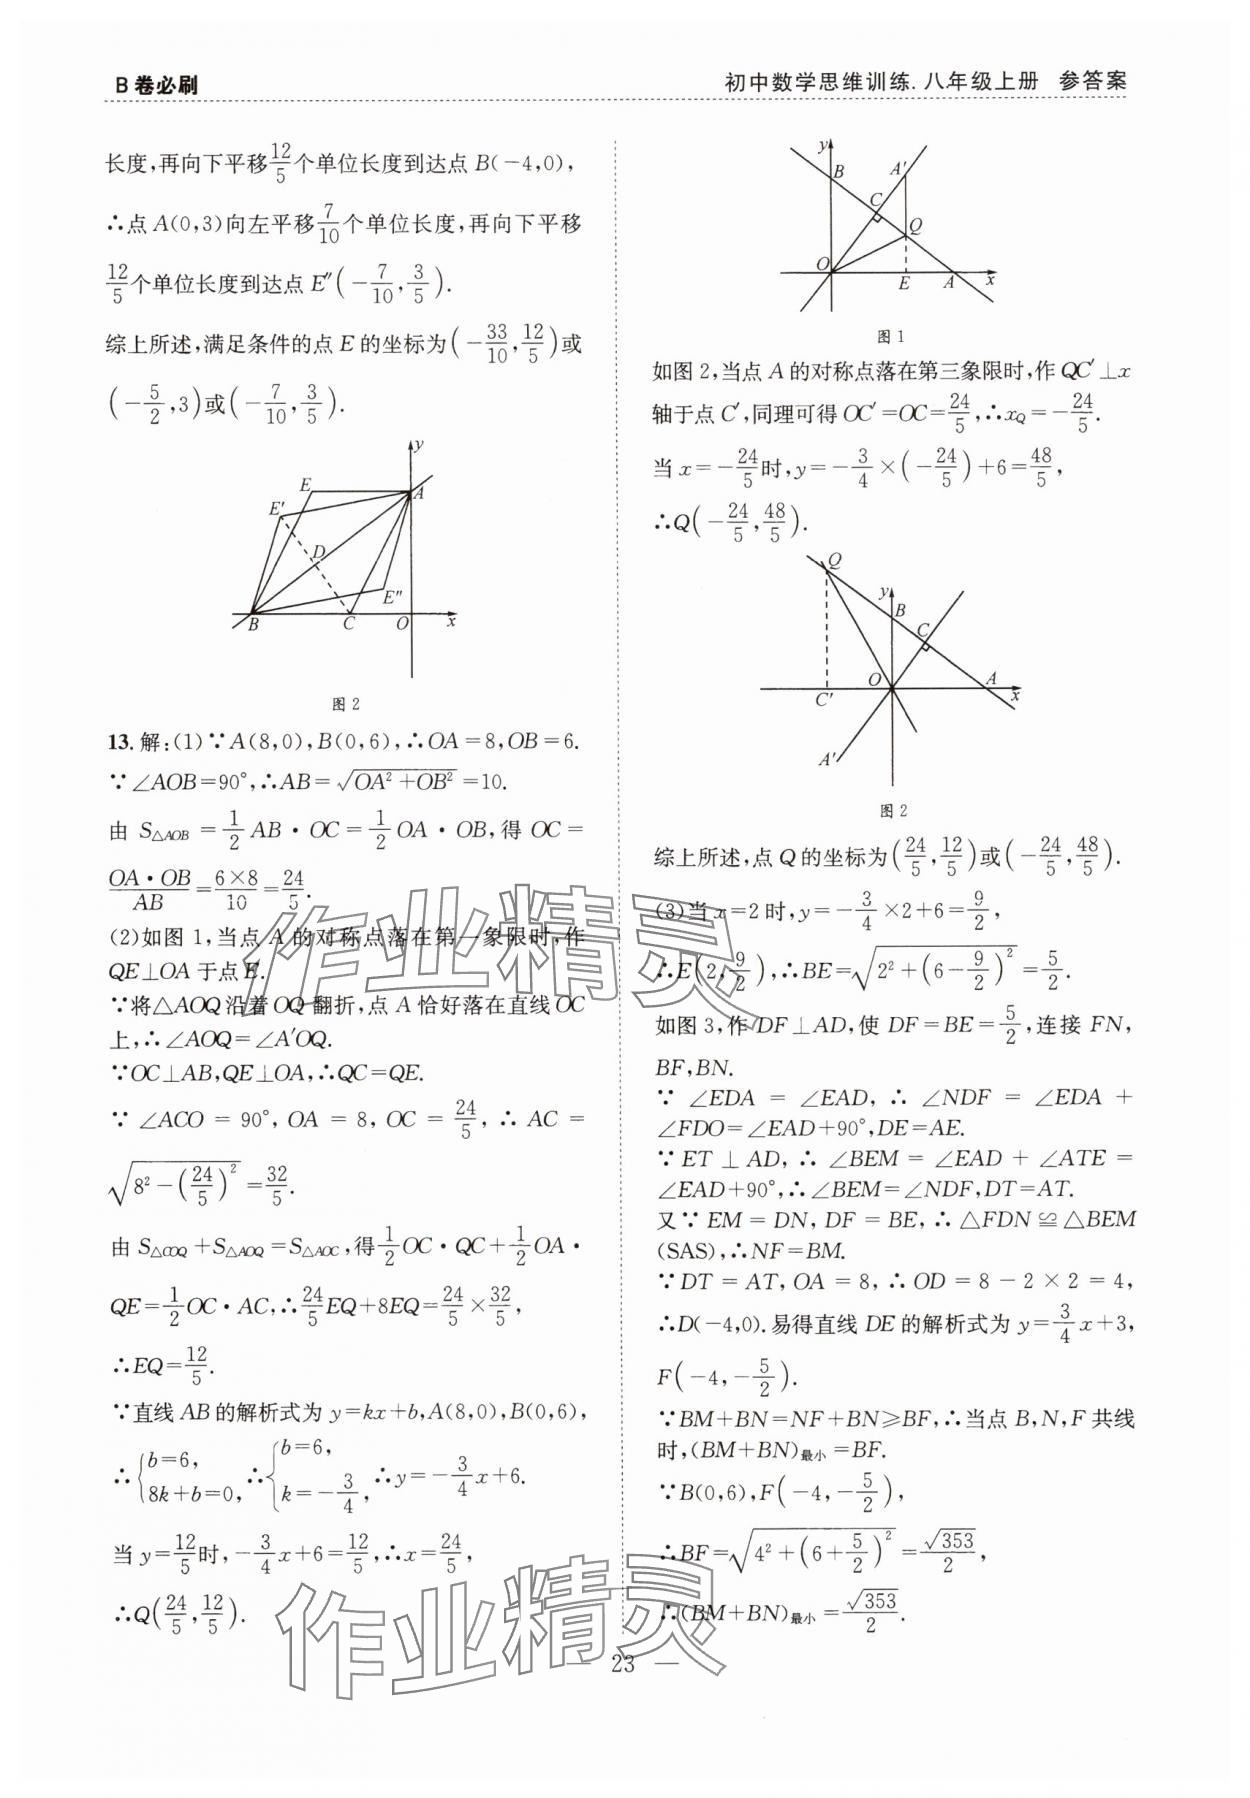 B卷必刷
初中数学思维训练.八年级上册 参答案
长度,再向下平移12/5个单位长度到达点 B(-4,0),
∴点 A(0,3)向左平移7/10个单位长度,再向下平移
12/5个单位长度到达点 E″(-7/10,3/5).
综上所述,满足条件的点 E 的坐标为(-33/10,12/5)或
(-5/2,3)或(-7/10,3/5).
y
E
A
E′
D
E″
B
C
O
x
图 2
13.解:(1)∵A(8,0),B(0,6),∴OA=8,OB=6.
∵∠AOB=90°,∴AB=√(OA²+OB²)=10.
由 S△AOB=1/2 AB·OC=1/2 OA·OB,得 OC=
OA·OB/AB=6×8/10=24/5.
(2)如图 1,当点 A 的对称点落在第一象限时,作
QE⊥OA 于点 E.
∵将△AOQ 沿着 OQ 翻折,点 A 恰好落在直线 OC
上,∴∠AOQ=∠A′OQ.
∵OC⊥AB,QE⊥OA,∴QC=QE.
∵∠ACO=90°,OA=8,OC=24/5,∴AC=
√(8²-(24/5)²)=32/5.
由 S△COQ+S△AOQ=S△AOC,得1/2 OC·QC+1/2 OA·
QE=1/2 OC·AC,∴24/5 EQ+8EQ=24/5×32/5,
∴EQ=12/5.
∵直线 AB 的解析式为 y=kx+b,A(8,0),B(0,6),
∴{b=6, 8k+b=0, ∴{b=6, k=-3/4, ∴y=-3/4x+6.
当 y=12/5时,-3/4x+6=12/5,∴x=24/5,
∴Q(24/5,12/5).
y
B
A′
C
Q
O
E
A
x
图 1
如图 2,当点 A 的对称点落在第三象限时,作 QC′⊥x
轴于点 C′,同理可得 OC′=OC=24/5,∴xQ=-24/5.
当 x=-24/5时,y=-3/4×(-24/5)+6=48/5,
∴Q(-24/5,48/5).
Q
y
B
C
O
A
C′
x
A′
图 2
综上所述,点 Q 的坐标为(24/5,12/5)或(-24/5,48/5).
(3)当 x=2 时,y=-3/4×2+6=9/2,
∴E(2,9/2),∴BE=√(2²+(6-9/2)²)=5/2.
如图 3,作 DF⊥AD,使 DF=BE=5/2,连接 FN,
BF,BN.
∵∠EDA=∠EAD,∴∠NDF=∠EDA+
∠FDO=∠EAD+90°,DE=AE.
∵ET⊥AD,∴∠BEM=∠EAD+∠ATE=
∠EAD+90°,∴∠BEM=∠NDF,DT=AT.
又∵EM=DN,DF=BE,∴△FDN≌△BEM
(SAS),∴NF=BM.
∵DT=AT,OA=8,∴OD=8-2×2=4,
∴D(-4,0).易得直线 DE 的解析式为 y=3/4x+3,
F(-4,-5/2).
∵BM+BN=NF+BN≥BF,∴当点 B,N,F 共线
时,(BM+BN)最小=BF.
∵B(0,6),F(-4,-5/2),
∴BF=√(4²+(6+5/2)²)=√353/2,
∴(BM+BN)最小=√353/2.
— 23 —
作业精灵
作业精灵